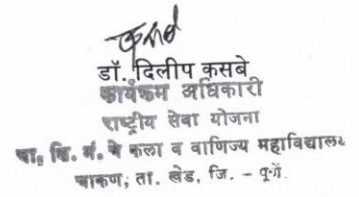 डॉ. दिलीप कसबे
कार्यक्रम अधिकारी
राष्ट्रीय सेवा योजना
वा, वि. मं. चे कला व वाणिज्य महाविद्यालय
चाकण; ता. खेड, जि. - पुणे.